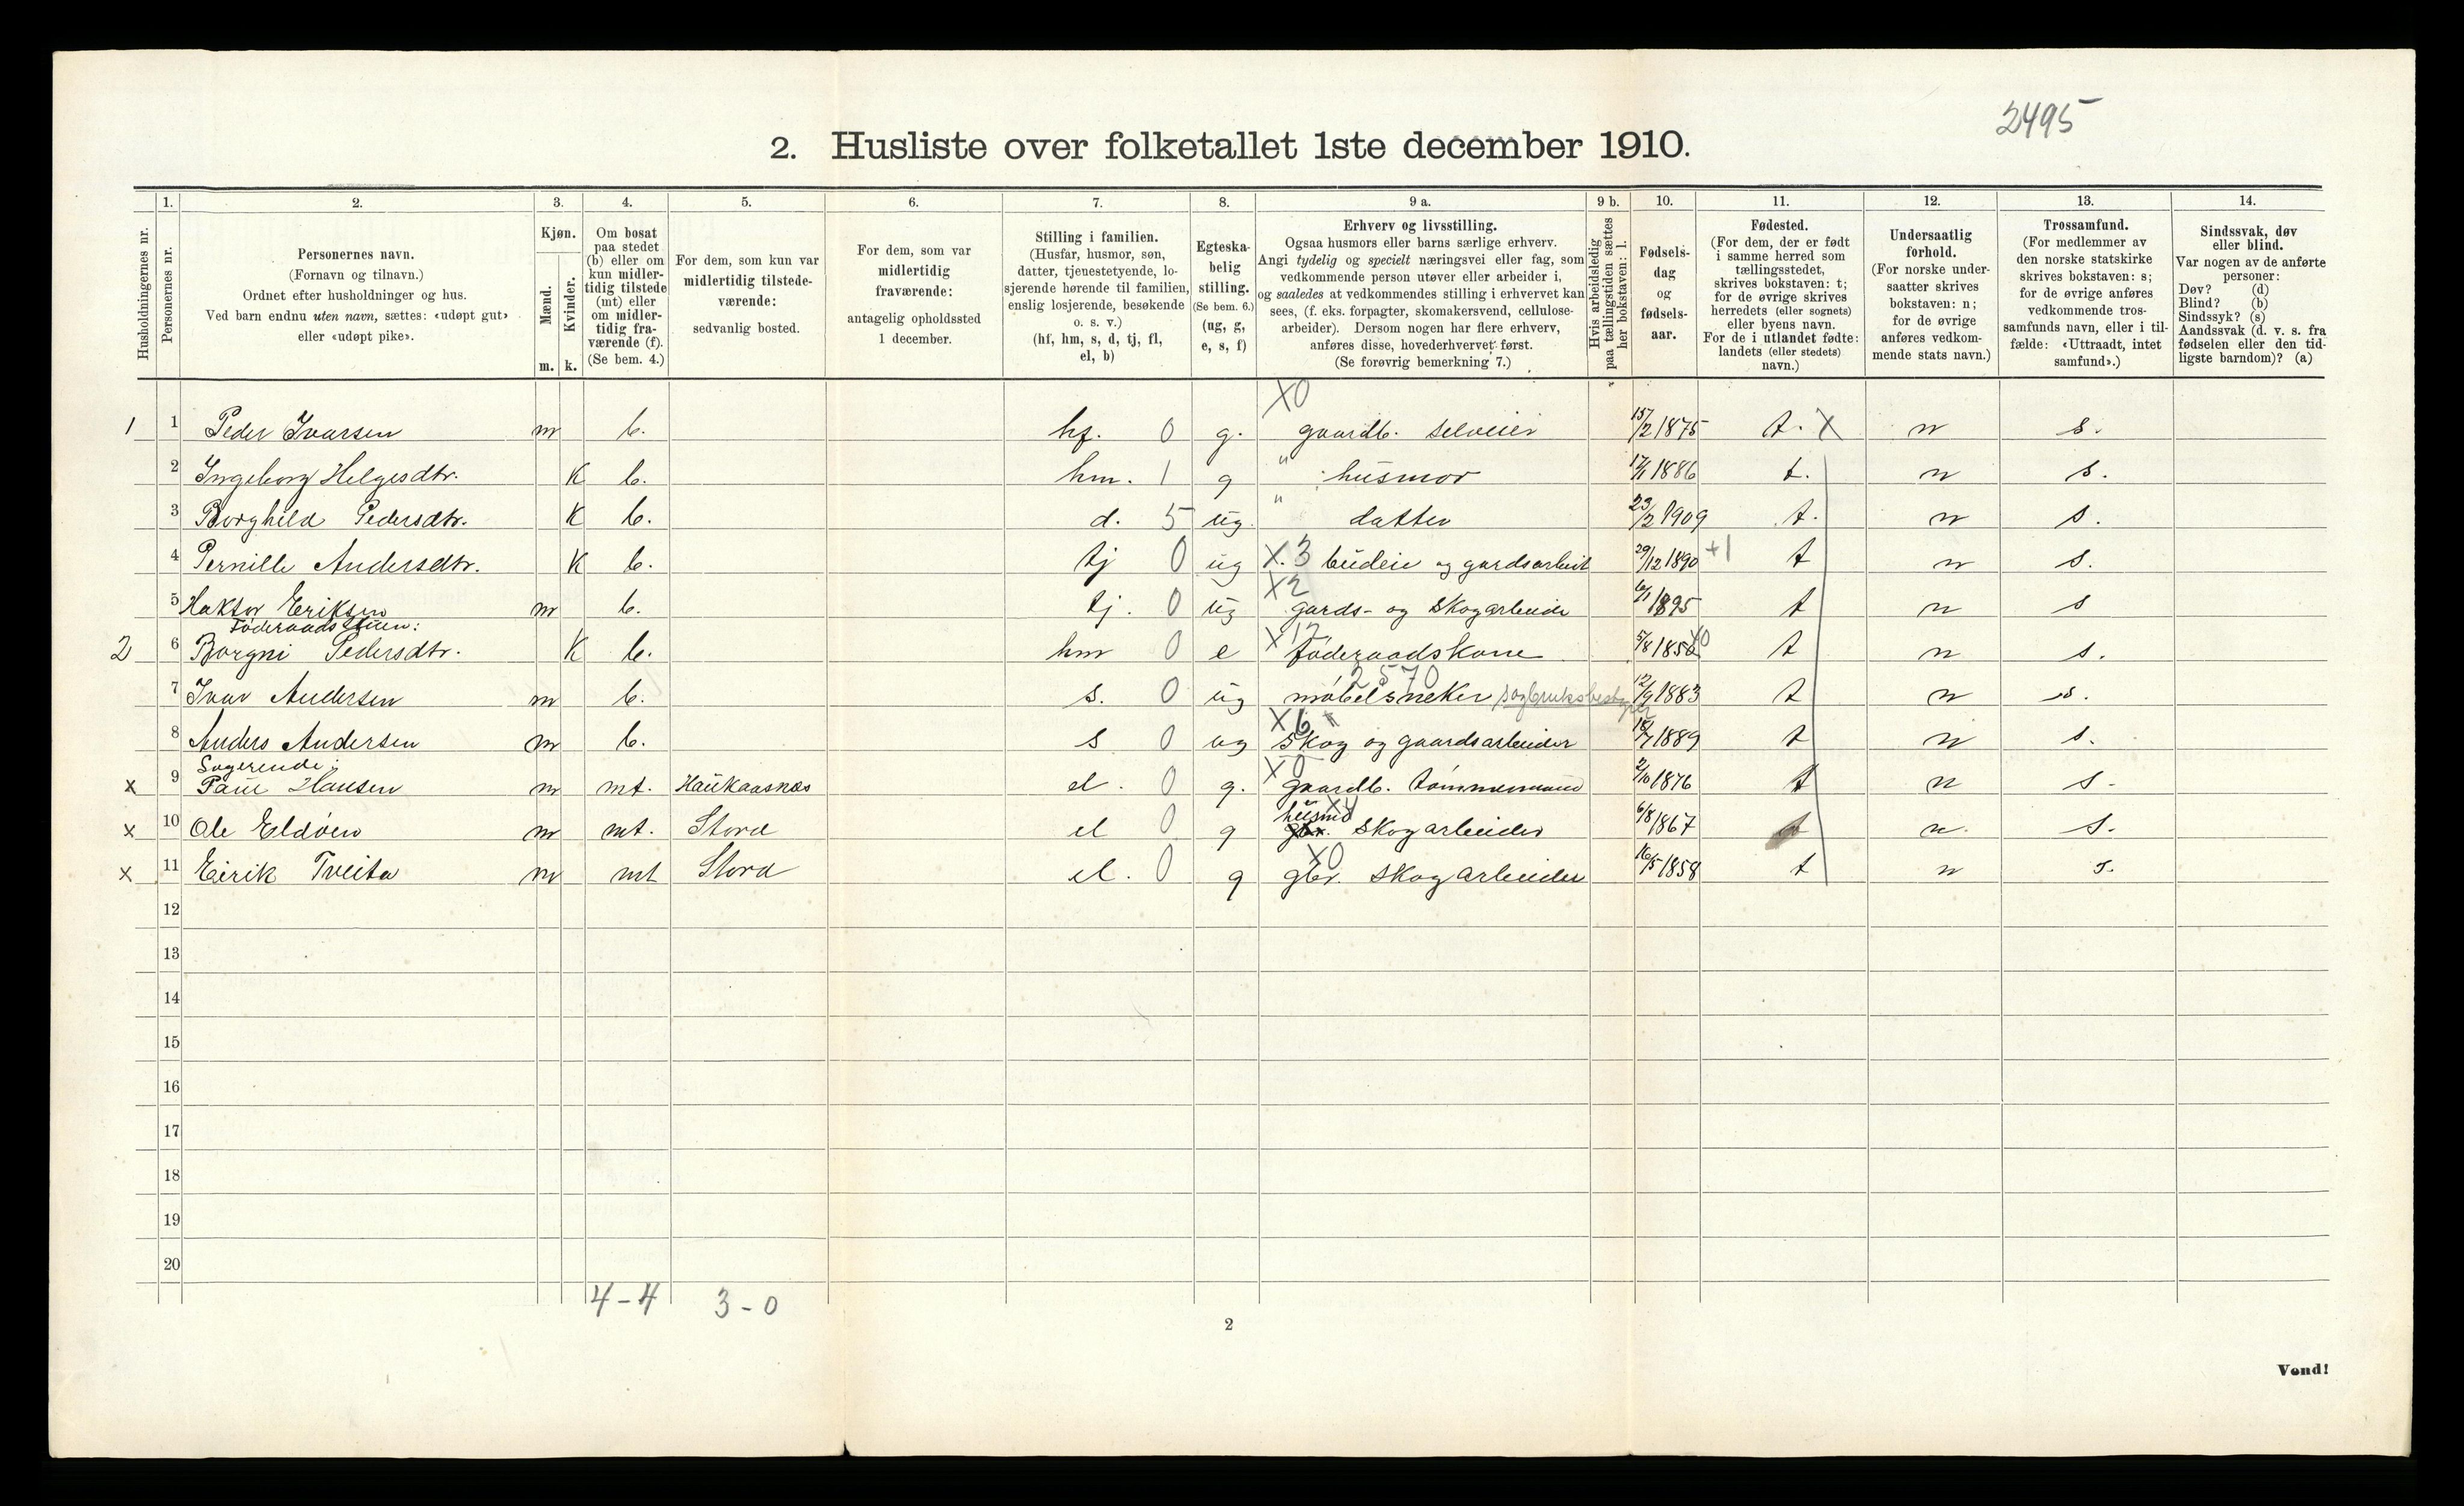 2495
2. Husliste over folketallet 1ste december 1910.
1. 2. 3. 4. 5. 6. 7. 8. 9 a. 9 b. 10. 11. 12. 13. 14.
Husholdningernes nr.
Personernes nr.
Personernes navn.
(Fornavn og tilnavn.)
Ordnet efter husholdninger og hus.
Ved barn endnu uten navn, sættes: «udøpt gut»
eller «udøpt pike».
Kjøn.
Mænd.
Kvinder.
m. k.
Om bosat
paa stedet
(b) eller om
kun midler-
tidig tilstede
(mt) eller
om midler-
tidig fra-
værende (f).
(Se bem. 4.)
For dem, som kun var
midlertidig tilstede-
værende:
sedvanlig bosted.
For dem, som var
midlertidig
fraværende:
antagelig opholdssted
1 december.
Stilling i familien.
(Husfar, husmor, søn,
datter, tjenestetyende, lo-
sjerende hørende til familien,
enslig losjerende, besøkende
o. s. v.)
(hf, hm, s, d, tj, fl,
el, b)
Egteska-
belig
stilling.
(Se bem. 6.)
(ug, g,
e, s, f)
Erhverv og livsstilling.
Ogsaa husmors eller barns særlige erhverv.
Angi tydelig og specielt næringsvei eller fag, som
vedkommende person utøver eller arbeider i,
og saaledes at vedkommendes stilling i erhvervet kan
sees, (f. eks. forpagter, skomakersvend, cellulose-
arbeider). Dersom nogen har flere erhverv,
anføres disse, hovederhvervet først.
(Se forøvrig bemerkning 7.)
Hvis arbeidsledig
paa tællingstiden sættes
her bokstaven: l.
Fødsels-
dag
og
fødsels-
aar.
Fødested.
(For dem, der er født
i samme herred som
tællingsstedet,
skrives bokstaven: t;
for de øvrige skrives
herredets (eller sognets)
eller byens navn.
For de i utlandet fødte:
landets (eller stedets)
navn.)
Undersaatlig
forhold.
(For norske under-
saatter skrives
bokstaven: n;
for de øvrige
anføres vedkom-
mende stats navn.)
Trossamfund.
(For medlemmer av
den norske statskirke
skrives bokstaven: s;
for de øvrige anføres
vedkommende tros-
samfunds navn, eller i til-
fælde: «Uttraadt, intet
samfund».)
Sindssvak, døv
eller blind.
Var nogen av de anførte
personer:
Døv? (d)
Blind? (b)
Sindssyk? (s)
Aandssvak (d. v. s. fra
fødselen eller den tid-
ligste barndom)? (a)
X0
1 1 Peder Ivarsen m b. hf. 0 g. gaardb. selveier 15/2 1875 t. X n s.
2 Ingeborg Helgesdtr. K b. hm. 1 g " husmor 17/1 1886 t. n s.
3 Borghild Pedersdtr. K b. d. 5 ug. " datter 23/2 1909 t. n s.
4 Pernille Andersdtr. K b. tj 0 ug X.3 budeie og gardsarbeit 29/12 1890 +1 t n s.
X2
5 Haktor Eriksen m b. tj. 0 ug gards- og skogarbeide 6/1 1895 t n s
Föderaadstuen:
2 6 Borgni Pedersdtr. K b. hm 0 e X12 föderaadskone 5/8 1850 t n s.
2570
7 Ivar Andersen m b. s. 0 ug möbelsneker sagbruksbestyrer 12/9 1883 t n s.
X6
8 Anders Andersen m b. s 0 ug skog og gaardsarbeider 18/7 1889 t n s.
Logerende:
X0
x 9 Paul Hansen m mt. Haukaasnæs el. 0 g. gaardb. tömmermand 2/10 1876 t n s.
husmd X4
x 10 Ole Eldöen m mt. Stord el 0 g gbr. skogarbeider 6/8 1867 t n. s.
X0
x 11 Eirik Tveita m mt Stord el. 0 g gbr. skogarbeider 16/5 1858 t n s.
12
13
14
15
16
17
18
19
20
4-4 3-0
2
Vend!